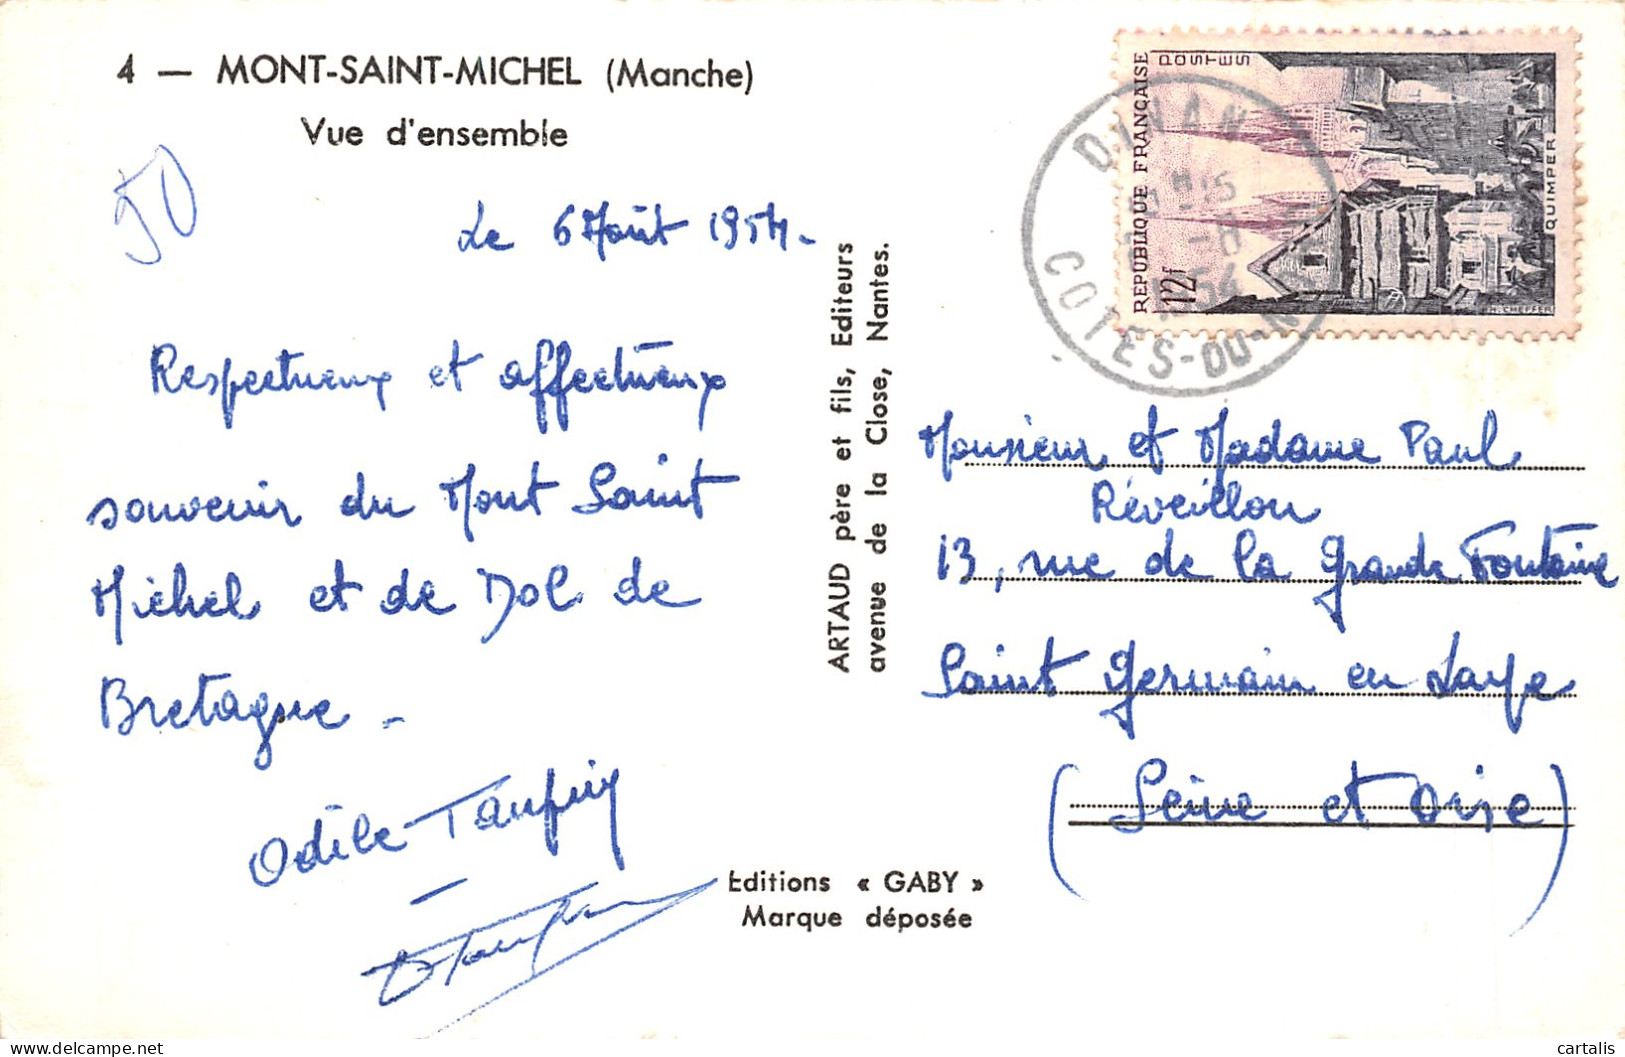 4 — MONT-SAINT-MICHEL (Manche)
Vue d'ensemble
50
Le 6 Août 1954.
Respectueux et affectueux
souvenir du Mont Saint
Michel et de Dol de
Bretagne.
Odile
ARTAUD père et fils, Editeurs
avenue de la Close, Nantes.
Editions « GABY »
Marque déposée
REPUBLIQUE FRANÇAISE
POSTES
12f
QUIMPER
H. CHEFFER
DINAN
1954
COTES-DU-N
Monsieur et Madame Paul
Réveillon
13, rue de la Grande Fontaine
Saint Germain en Laye
(Seine et Oise)
cartalis